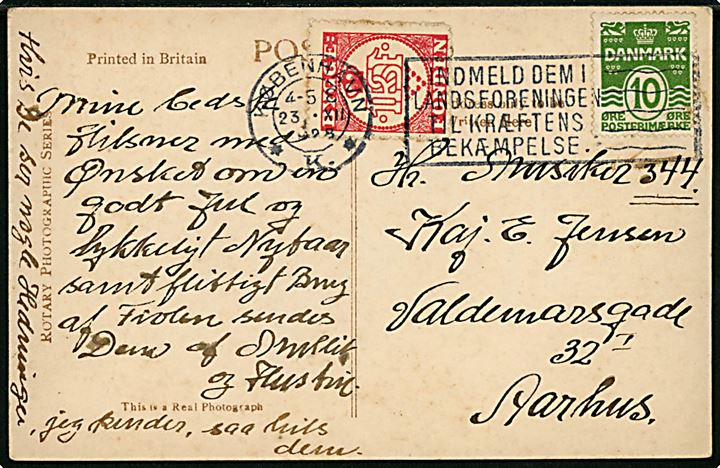 Printed in Britain
POS
KØBENHAVN
4-5
23. XII
K.
FORENINGEN
INDMELD DEM I
LANDSFORENINGEN
TIL KRÆFTENS
BEKÆMPELSE.
DANMARK
10
ØRE ØRE
POSTFRIMÆRKE
ROTARY PHOTOGRAPHIC SERIES
Mine bedste
Hilsner med
Ønsket om en
godt Jul og
Lykkeligt Nytaar
samt flittigt Brug
af Fiolen sendes
Dem af
og Hustru.
This is a Real Photograph
Hvis De ser nogle Hadninger,
jeg kender, saa hils
dem.
Hr. Musiker 344
Kaj. E. Jensen
Valdemarsgade
32 I
Aarhus.